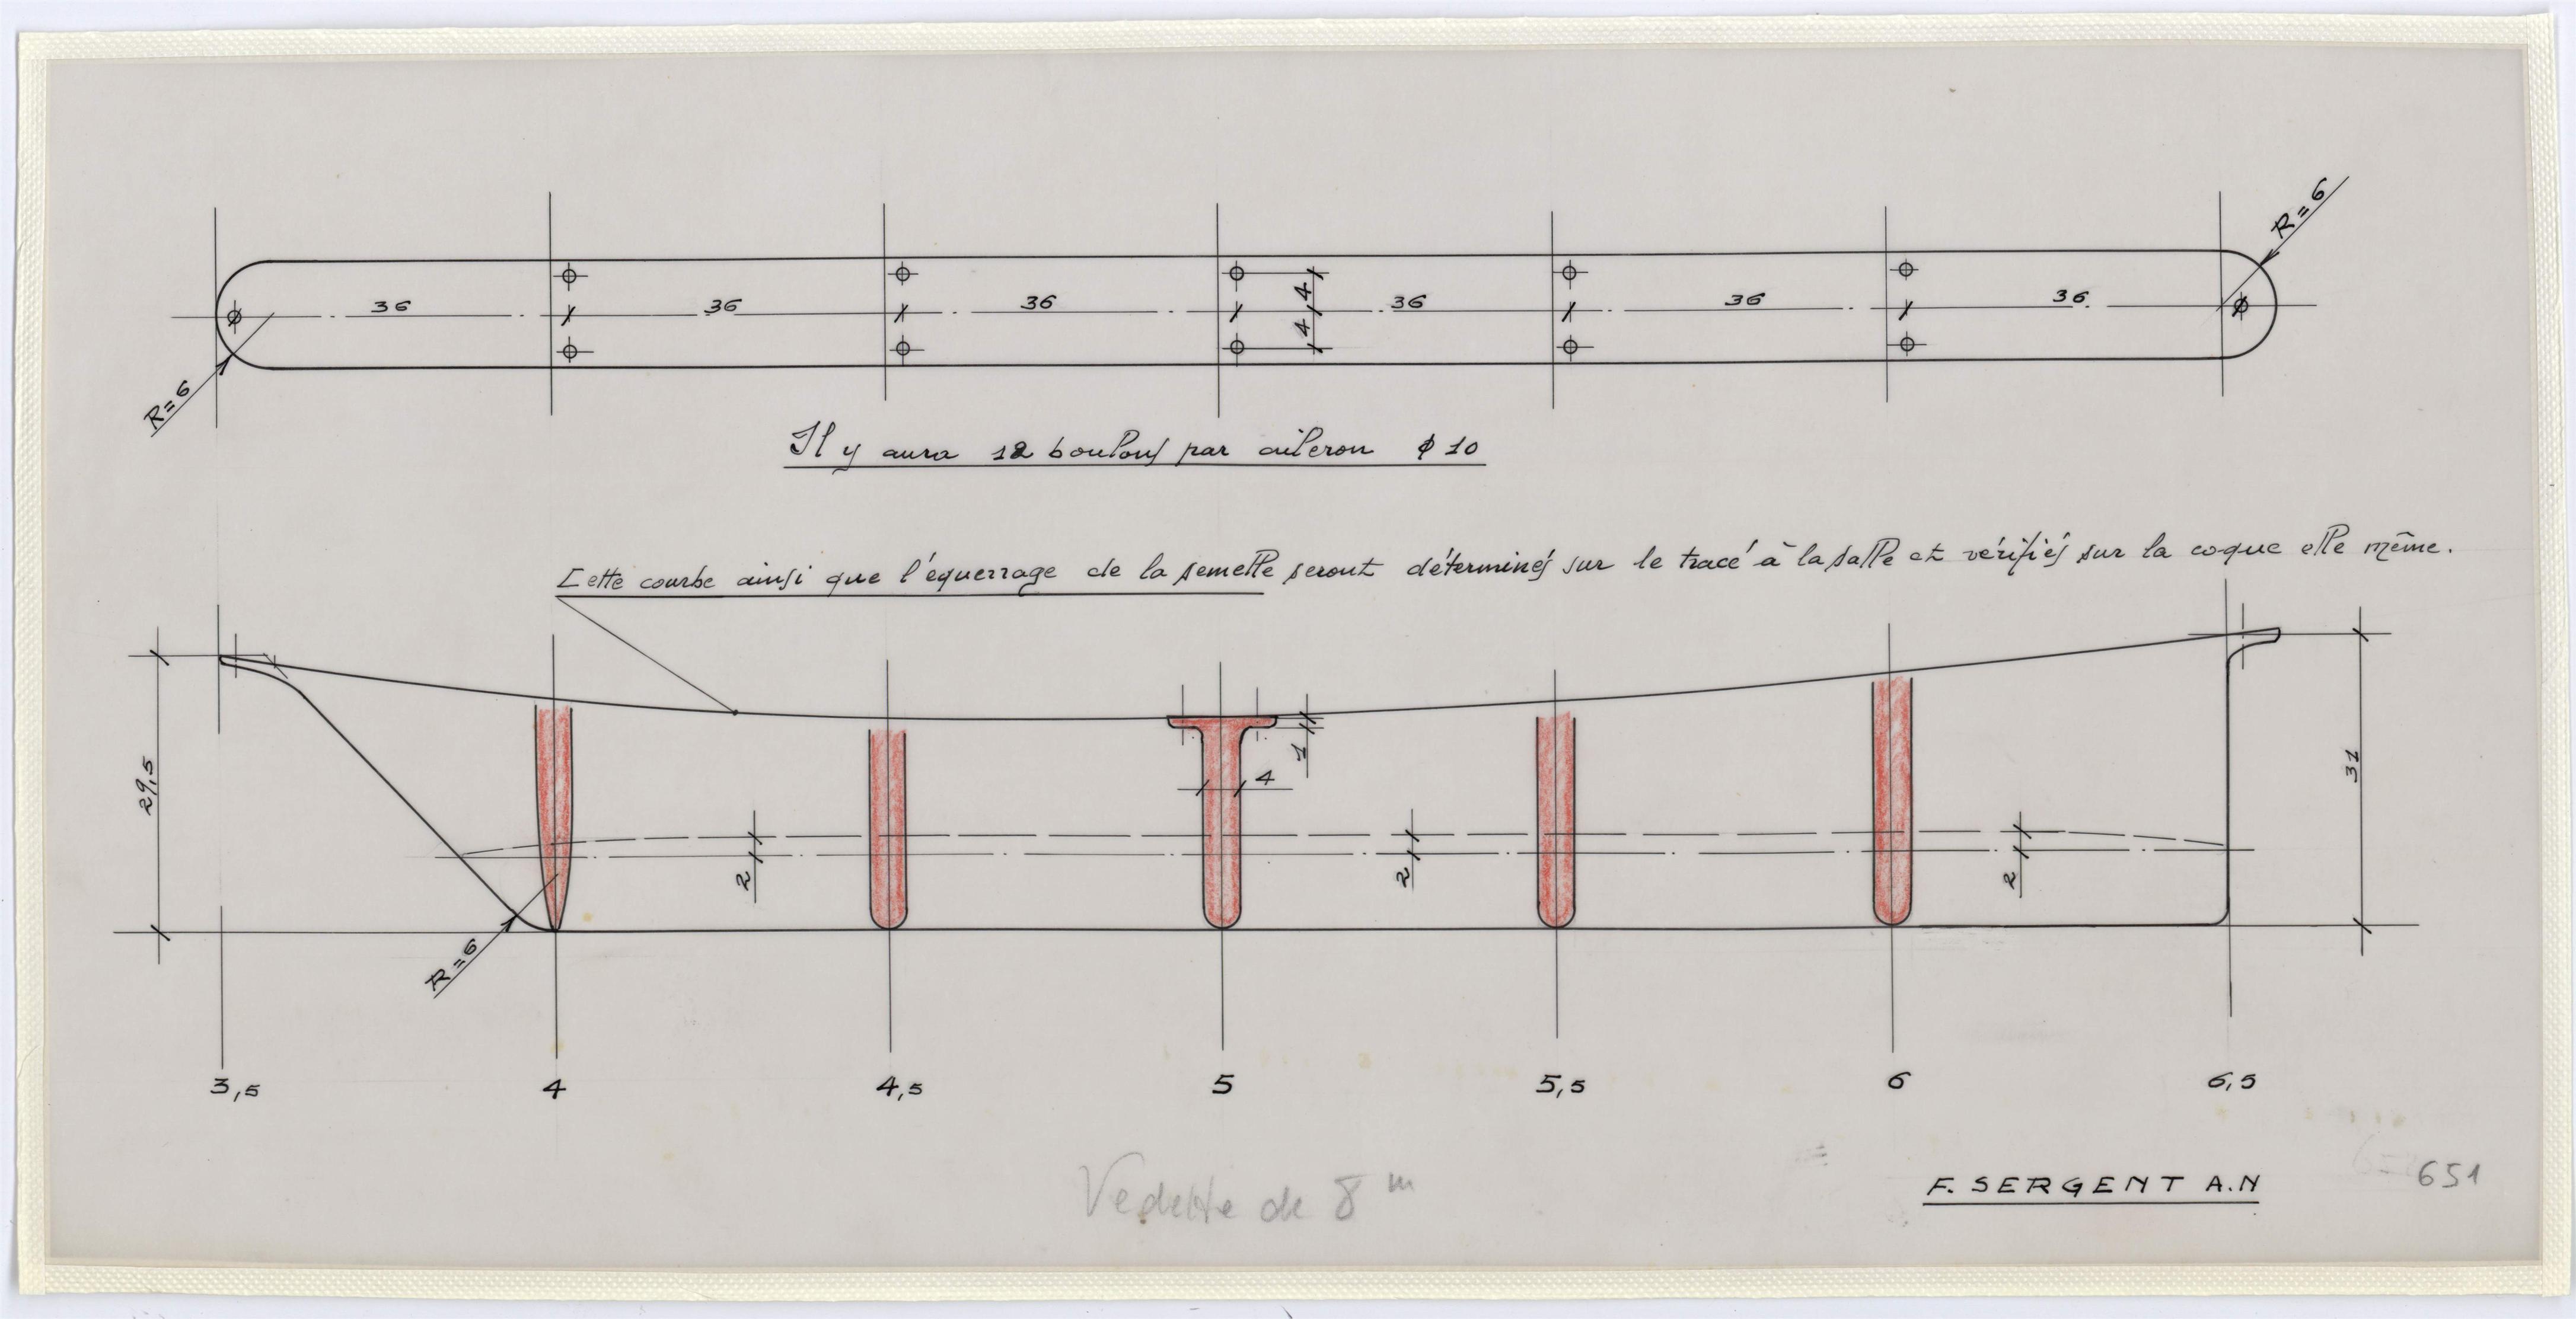 R=6
36 36 36 36 36 36.
4
4
R=6
Il y aura 12 boulons par aileron ϕ 10
Cette courbe ainsi que l'équerrage de la semelle seront déterminés sur le tracé à la salle et vérifiés sur la coque elle même.
29,5
1
4
31
2
2
2
R=6
3,5 4 4,5 5 5,5 6 6,5
Vedette de 8 m
F. SERGENT A.N
651